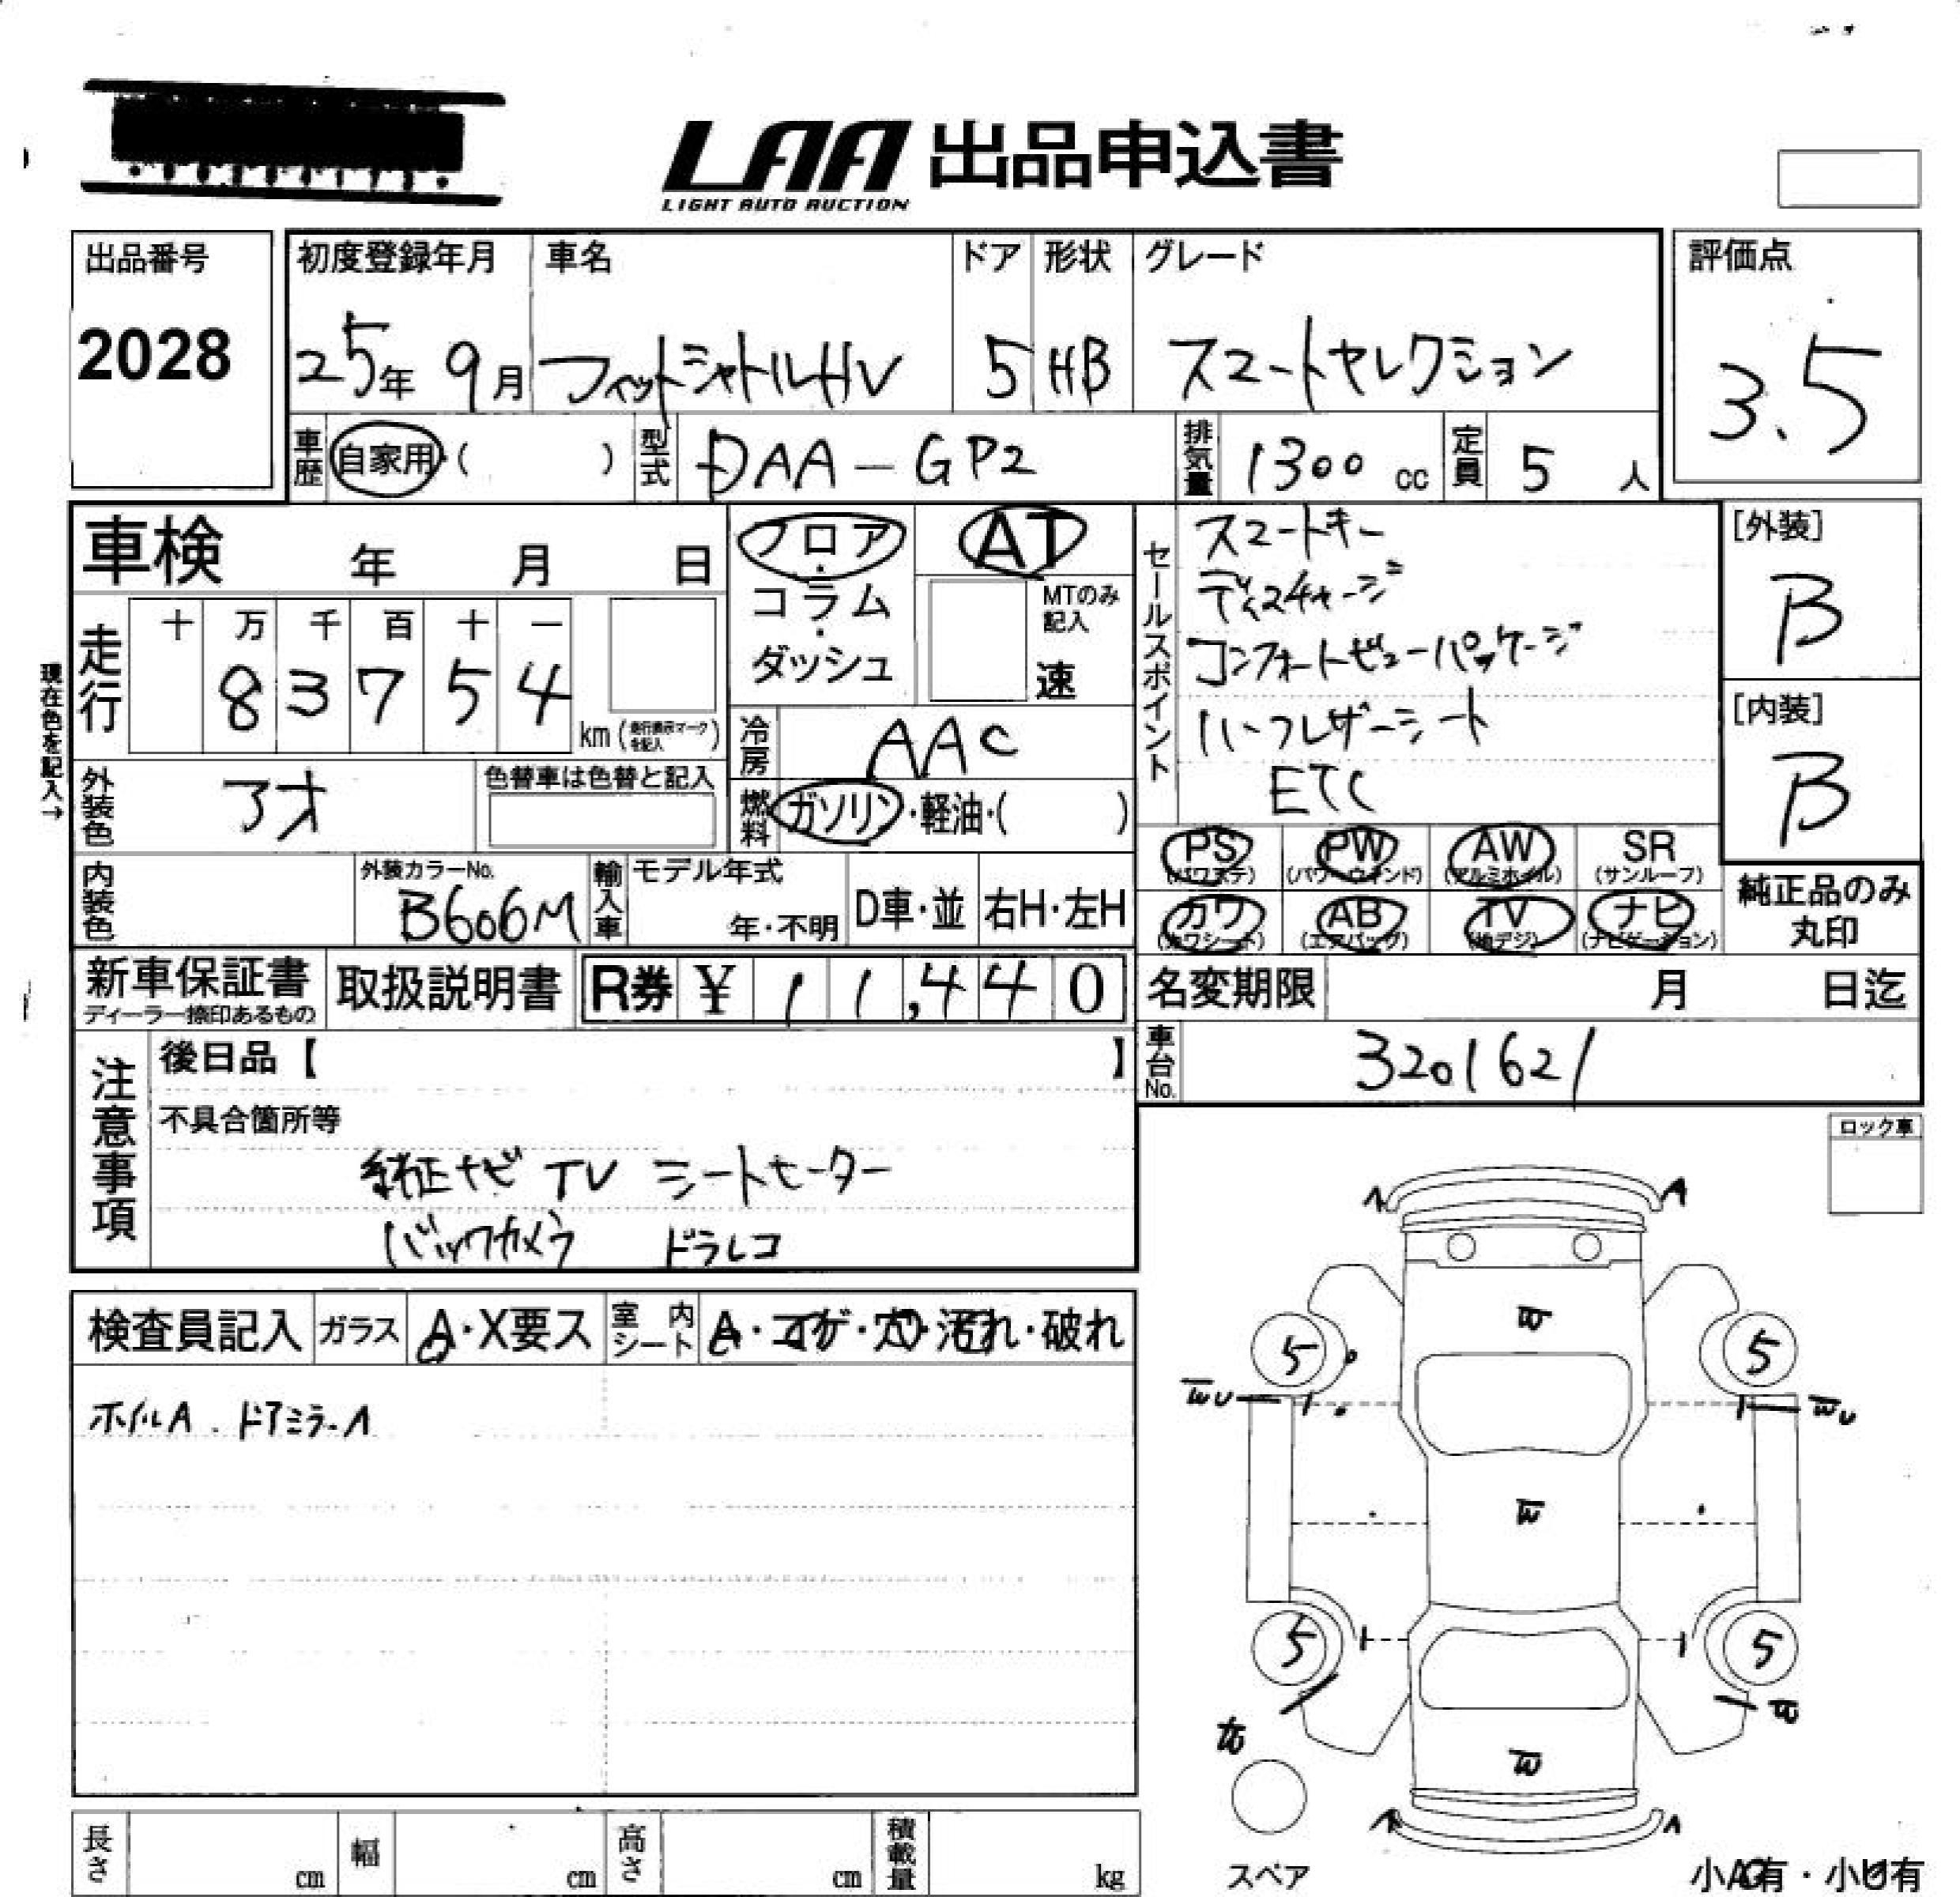 LAA 出品申込書
LIGHT AUTO AUCTION
出品番号
2028
初度登録年月 車名 ドア 形状 グレード
25年 9月 フィットシャトルHV 5 HB スマートセレクション
評価点
3.5
車歴 自家用・( ) 型式 DAA-GP2 排気量 1300 cc 定員 5 人
車検 年 月 日
フロア・コラム・ダッシュ
AT
MTのみ記入
速
セールスポイント
スマートキー
ディスチャージ
コンフォートビューパッケージ
ハーフレザーシート
ETC
[外装]
B
[内装]
B
現在色を記入→
走行 十 万 千 百 十 一
8 3 7 5 4
km (走行表示マークを記入)
冷房 AAC
外装色 アオ 色替車は色替と記入
燃料 ガソリン・軽油・( )
PS (パワステ) PW (パワーウィンド) AW (アルミホイル) SR (サンルーフ)
カワ (カワシート) AB (エアバッグ) TV (地デジ) ナビ (ナビゲーション)
純正品のみ丸印
内装色 外装カラーNo. B606M 輸入車 モデル年式 年・不明 D車・並 右H・左H
新車保証書 取扱説明書 R券 ¥ 11,440
ディーラー捺印あるもの
名変期限 月 日迄
車台No. 3201621
注意事項
後日品【 】
不具合箇所等
純正ナビ TV シートモーター
バックカメラ ドラレコ
ロック車
検査員記入 ガラス A・X要ス 室内シート A・コゲ・穴・汚れ・破れ
ホイルA. ドアミラーA
A A
W
5 5
WU WU
W
5 5
W W
W
A A
スペア
小A有・小U有
長さ cm 幅 cm 高さ cm 積載量 kg